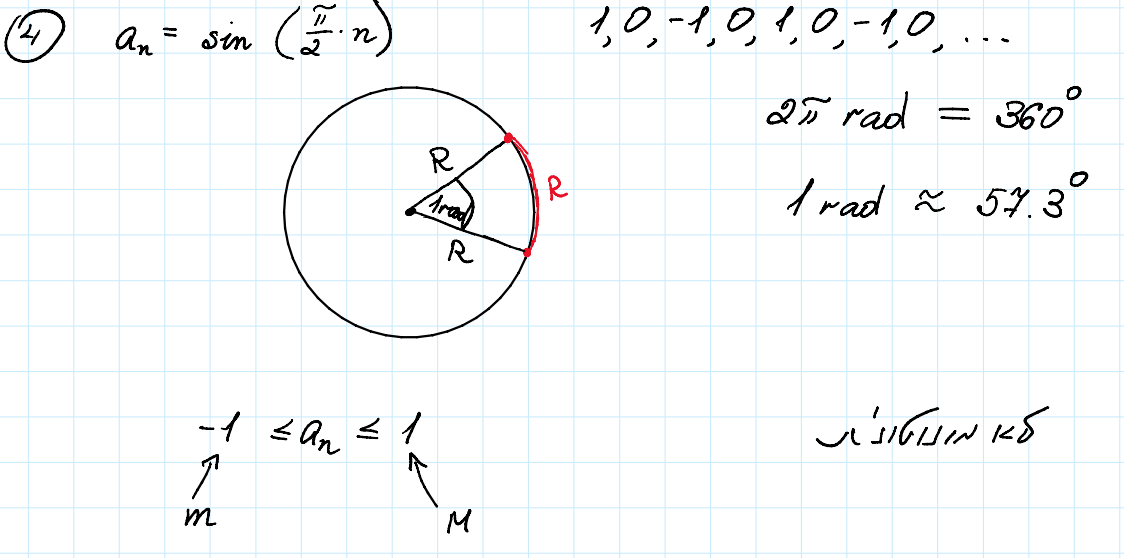 ④ aₙ = sin (π/2 · n) 1, 0, -1, 0, 1, 0, -1, 0, ...
2π rad = 360°
R
1 rad
R
R
1 rad ≈ 57.3°
-1 ≤ aₙ ≤ 1
לא מונוטונית
m
M